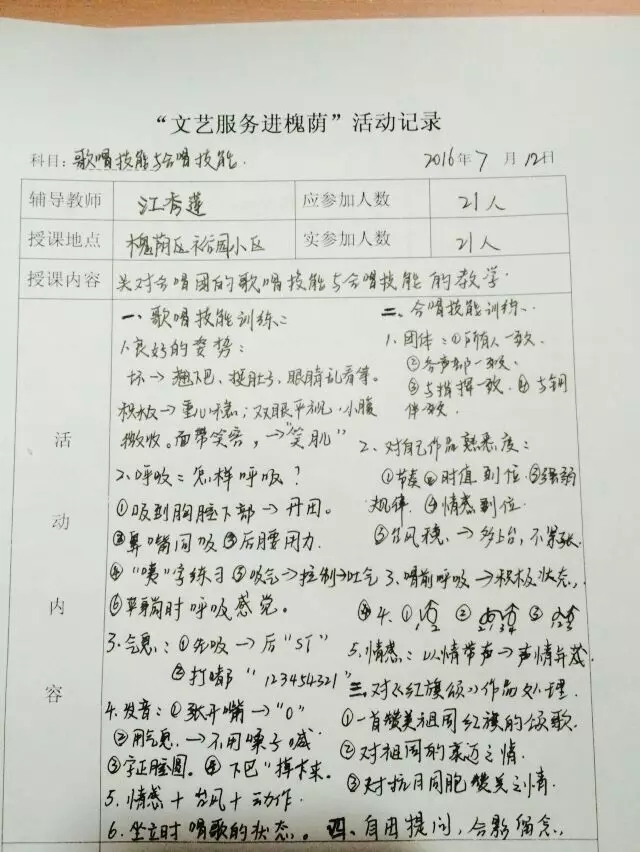 “文艺服务进槐荫”活动记录
科目：歌唱技能与合唱技能. 2016年7月12日
辅导教师 江秀莲 应参加人数 21人
授课地点 槐荫区裕园小区 实参加人数 21人
授课内容 关对合唱团的歌唱技能与合唱技能的教学.
活动内容
一、歌唱技能训练：
1.良好的姿势：
坏→翘下巴、挺肚子、眼睛乱看等。
积极→重心稳；双眼平视、小腹
微收。面带笑容，→“笑肌”
2、呼吸：怎样呼吸？
①吸到胸腔下部→丹田。
②鼻嘴同吸③后腰用力.
④“咦”字练习⑤吸气→控制→吐气
⑥平躺时呼吸感觉。
3.气息：①先吸→后“ST”
②打嘟“123454321”
4.发音：①张开嘴→“O”
②用气息.→不用嗓子喊
③字正腔圆。④下巴“掉下来。
5.情感+台风+动作.
6.坐立时唱歌的状态。
二、合唱技能训练、
1.团体：①所有人一致.
②各声部一致.
③与指挥一致.④与钢
伴一致.
2、对自己作品熟悉度：
①节奏②时值到位③强弱
规律.④情感到位.
⑤台风稳→多上台，不紧张.
3、唱前呼吸→积极状态.
4.① ② ③
5.情感：以情带声→声情并茂.
三、对《红旗颂》作品处理.
①一首赞美祖国红旗的颂歌.
②对祖国的豪迈之情.
③对抗日同胞赞美之情.
四、自由提问，合影留念.